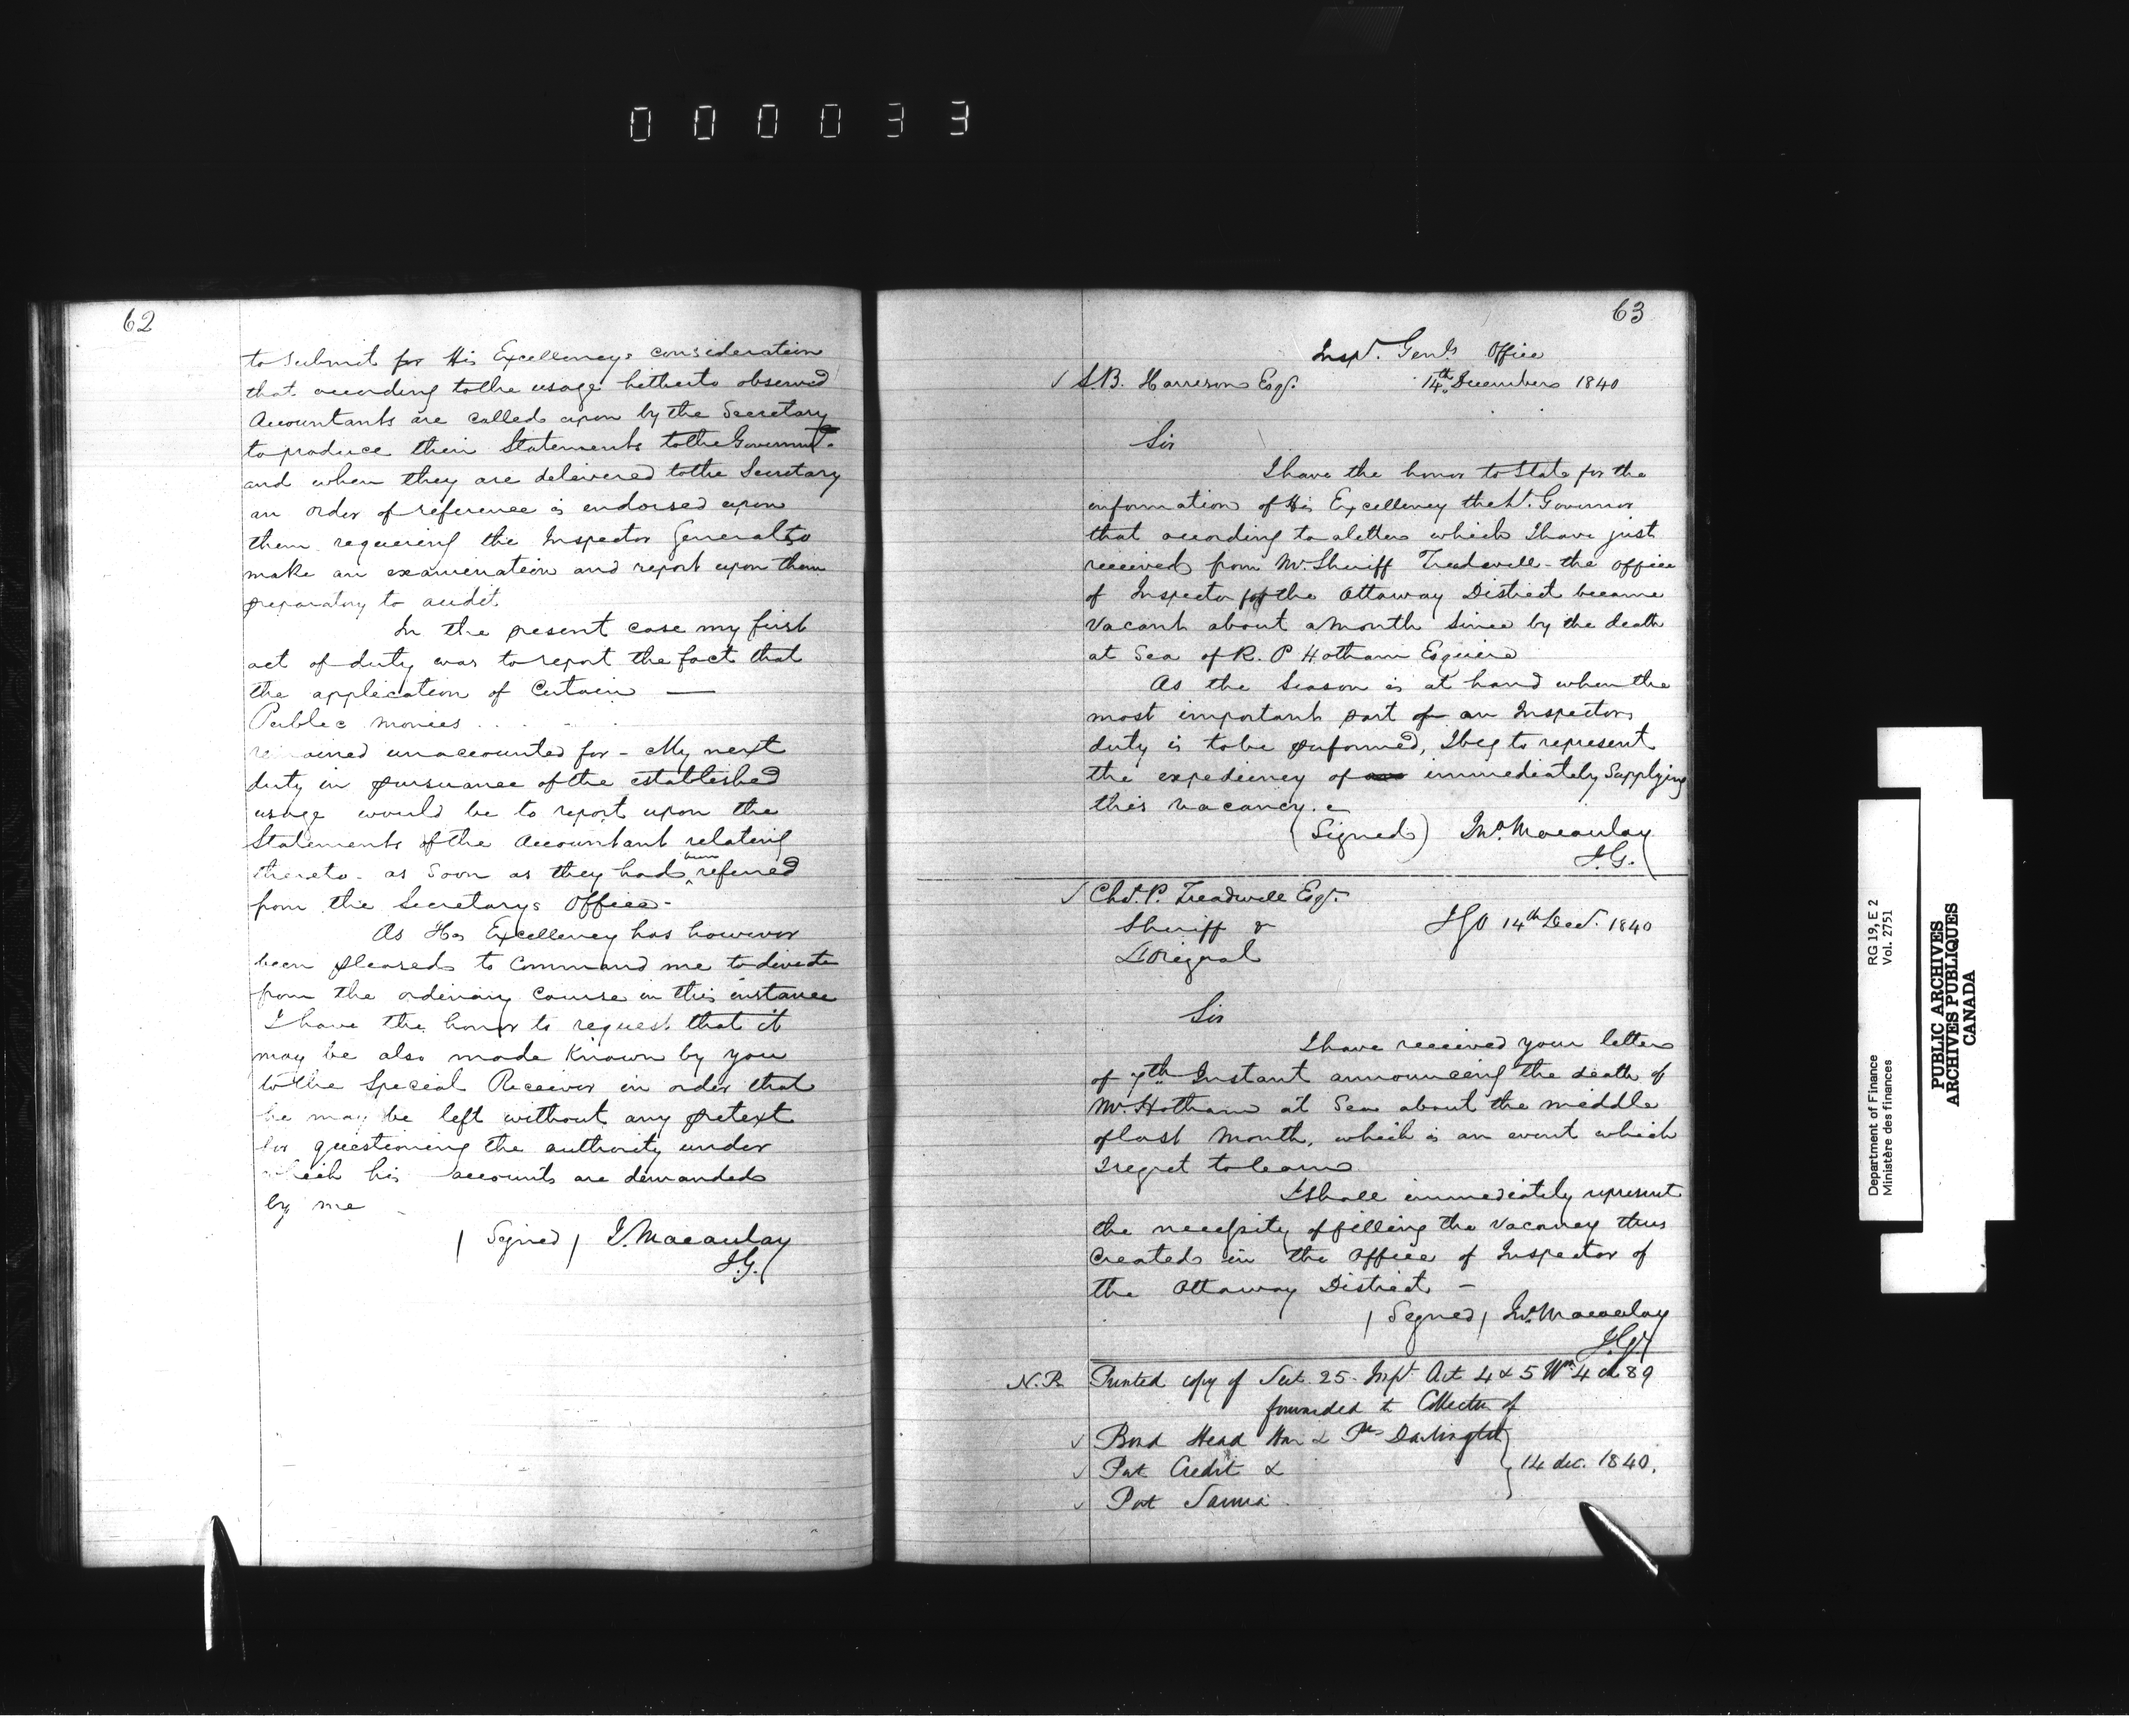 000033
62
to submit for His Excellencys consideration
that according to the usage hitherto observed
Accountants are called upon by the Secretary
to produce their Statements to the Governmt.
and when they are delivered to the Secretary
an order of reference is endorsed upon
them requiring the Inspector General to
make an examination and report upon them
preparatory to audit.
In the present case my first
act of duty was to report the fact that
the application of Certain —
Public monies
remained unaccounted for - My next
duty in pursuance of the established
usage would be to report upon the
Statements of the Accountant relating
thereto. as soon as they had been referred
from the Secretarys Office-
As His Excellency has however
been pleased to command me to deviate
from the ordinary course in this instance
I have the honor to request that it
may be also made known by you
to the Special Receiver in order that
he may be left without any pretext
for questioning the authority under
which his accounts are demanded
by me
(Signed) J. Macaulay
I.G.
63
Inspr. Genls Office
✓ S.B. Harrison Esqr. 14th December 1840
Sir
I have the honor to State for the
information of His Excellency the Lt. Governor
that according to a letter which I have just
received from Mr. Sheriff Treadwell - the office
of Inspector for the Ottaway District became
Vacant about a Month Since by the death
at Sea of R. P Hotham Esquire
As the Season is at hand when the
most important part of an Inspectors
duty is to be performed, I beg to represent
the expediency of immediately Supplying
this vacancy.
(Signed) Jno. Macaulay
I.G.
✓ Chs. P. Treadwell Esqr.
Sheriff &
IGO 14th Decr. 1840
L'Orignal
Sir
I have received your letter
of 7th Instant announcing the death of
Mr. Hotham at Sea about the middle
of last Month, which is an event which
I regret to learn
I shall immediately represent
the necessity of filling the vacancy thus
created in the Office of Inspector of
the Ottaway District. -
(Signed) Jno. Macaulay
I.G.
N.B. Printed copy of Sect. 25. Impl Act 4 & 5 Wm 4 ch 89
forwarded to Collector of
✓ Bond Head Har & Pt Darlington
✓ Port Credit &
14 dec. 1840.
✓ Port Sarnia
Department of Finance
Ministère des finances
RG 19, E 2
Vol. 2751
PUBLIC ARCHIVES
ARCHIVES PUBLIQUES
CANADA